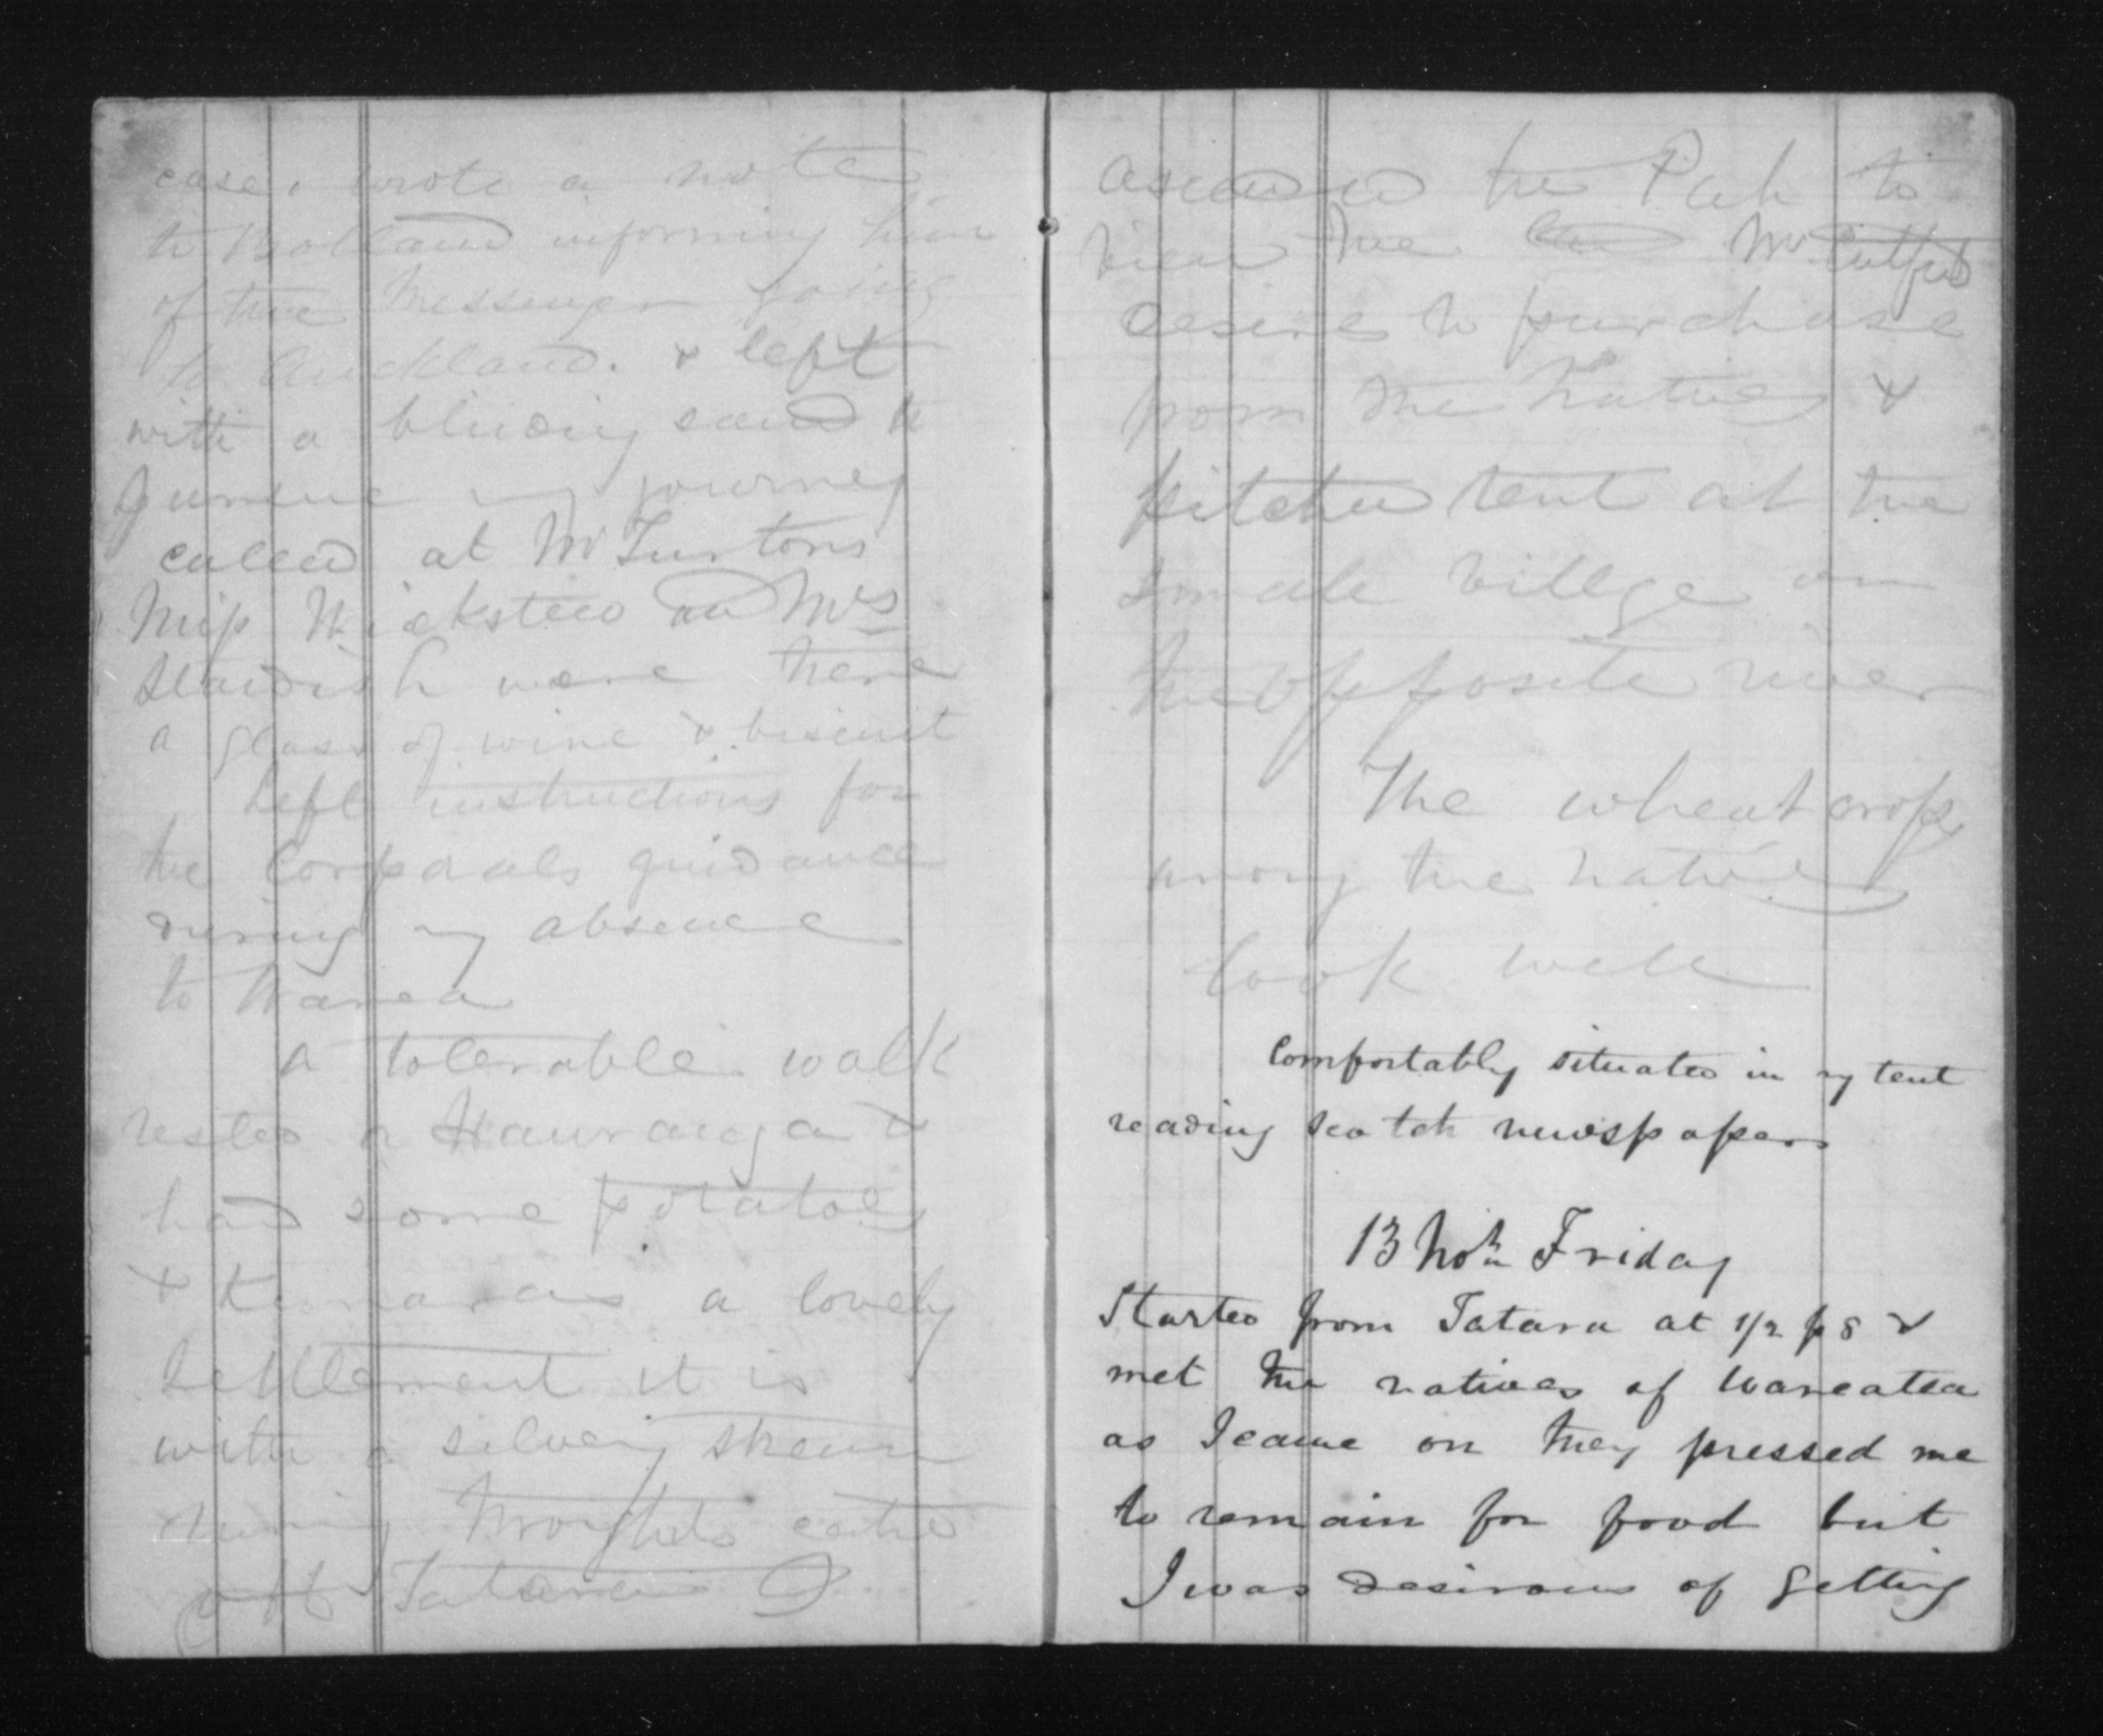 case, wrote a note
to Bolland informing him
of the Messenger going
to Auckland. & left
with a blinding sand to
pursue my journey
called at Mr Turtons
Miss Wicksteed and Mrs
Standish were here
a glass of wine & biscuit
Left instructions for
the Corporals guidance
during my absence
to Warea
a tolerable walk
rested a Hauranga &
had some potatoes
& Kumaras a lovely
Settlement it is
with a silvery stream
runing
off Tataraa
ascended the Pah to
view the Mr Cutfield
desires to purchase
from the natives &
pitched tent at the
small villge on
the opposite river
The wheat crops
among the natives
look well
Comfortably situated in my tent
reading scotch newspapers
13 Novr Friday
Started from Tatara at 1/2 p 8 &
met the natives of Wareatea
as I came on they pressed me
to remain for food but
I was desirous of getting